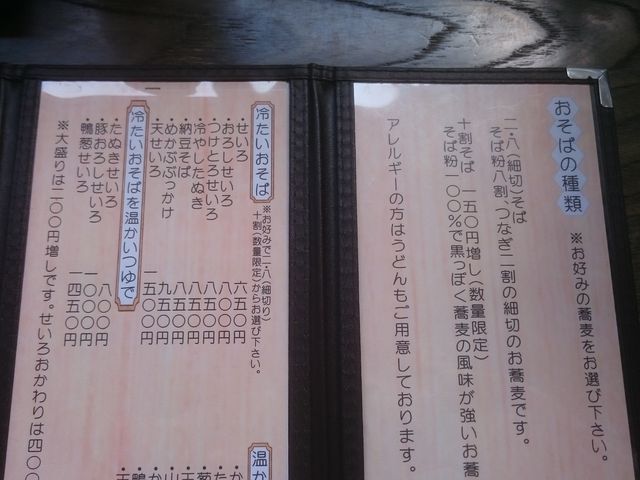 おそばの種類 ※お好みの蕎麦をお選び下さい。
二・八(細切)そば
そば粉八割、つなぎ二割の細切のお蕎麦です。
十割そば 一五〇円増し(数量限定)
そば粉一〇〇%で黒っぽく蕎麦の風味が強いお蕎
アレルギーの方はうどんもご用意しております。
冷たいおそば
※お好みで二・八(細切り)
十割(数量限定)からお選び下さい。
・せいろ 六五〇円
・おろしせいろ 八〇〇円
・つけとろせいろ 八五〇円
・冷やしたぬき 八五〇円
・納豆そば 八五〇円
・めかぶぶっかけ 九五〇円
・天せいろ 一五〇〇円
冷たいおそばを温かいつゆで
・たぬきせいろ 八〇〇円
・豚おろしせいろ 一〇〇〇円
・鴨葱せいろ 一四五〇円
※大盛りは二〇〇円増しです。せいろおかわりは四〇〇
温か